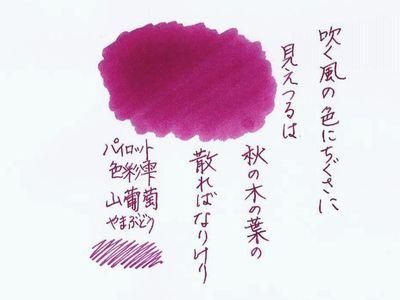 吹く風の色にちぐさに
見えつるは
秋の木の葉の
散ればなりけり
パイロット
色彩雫
山葡萄
やまぶどう